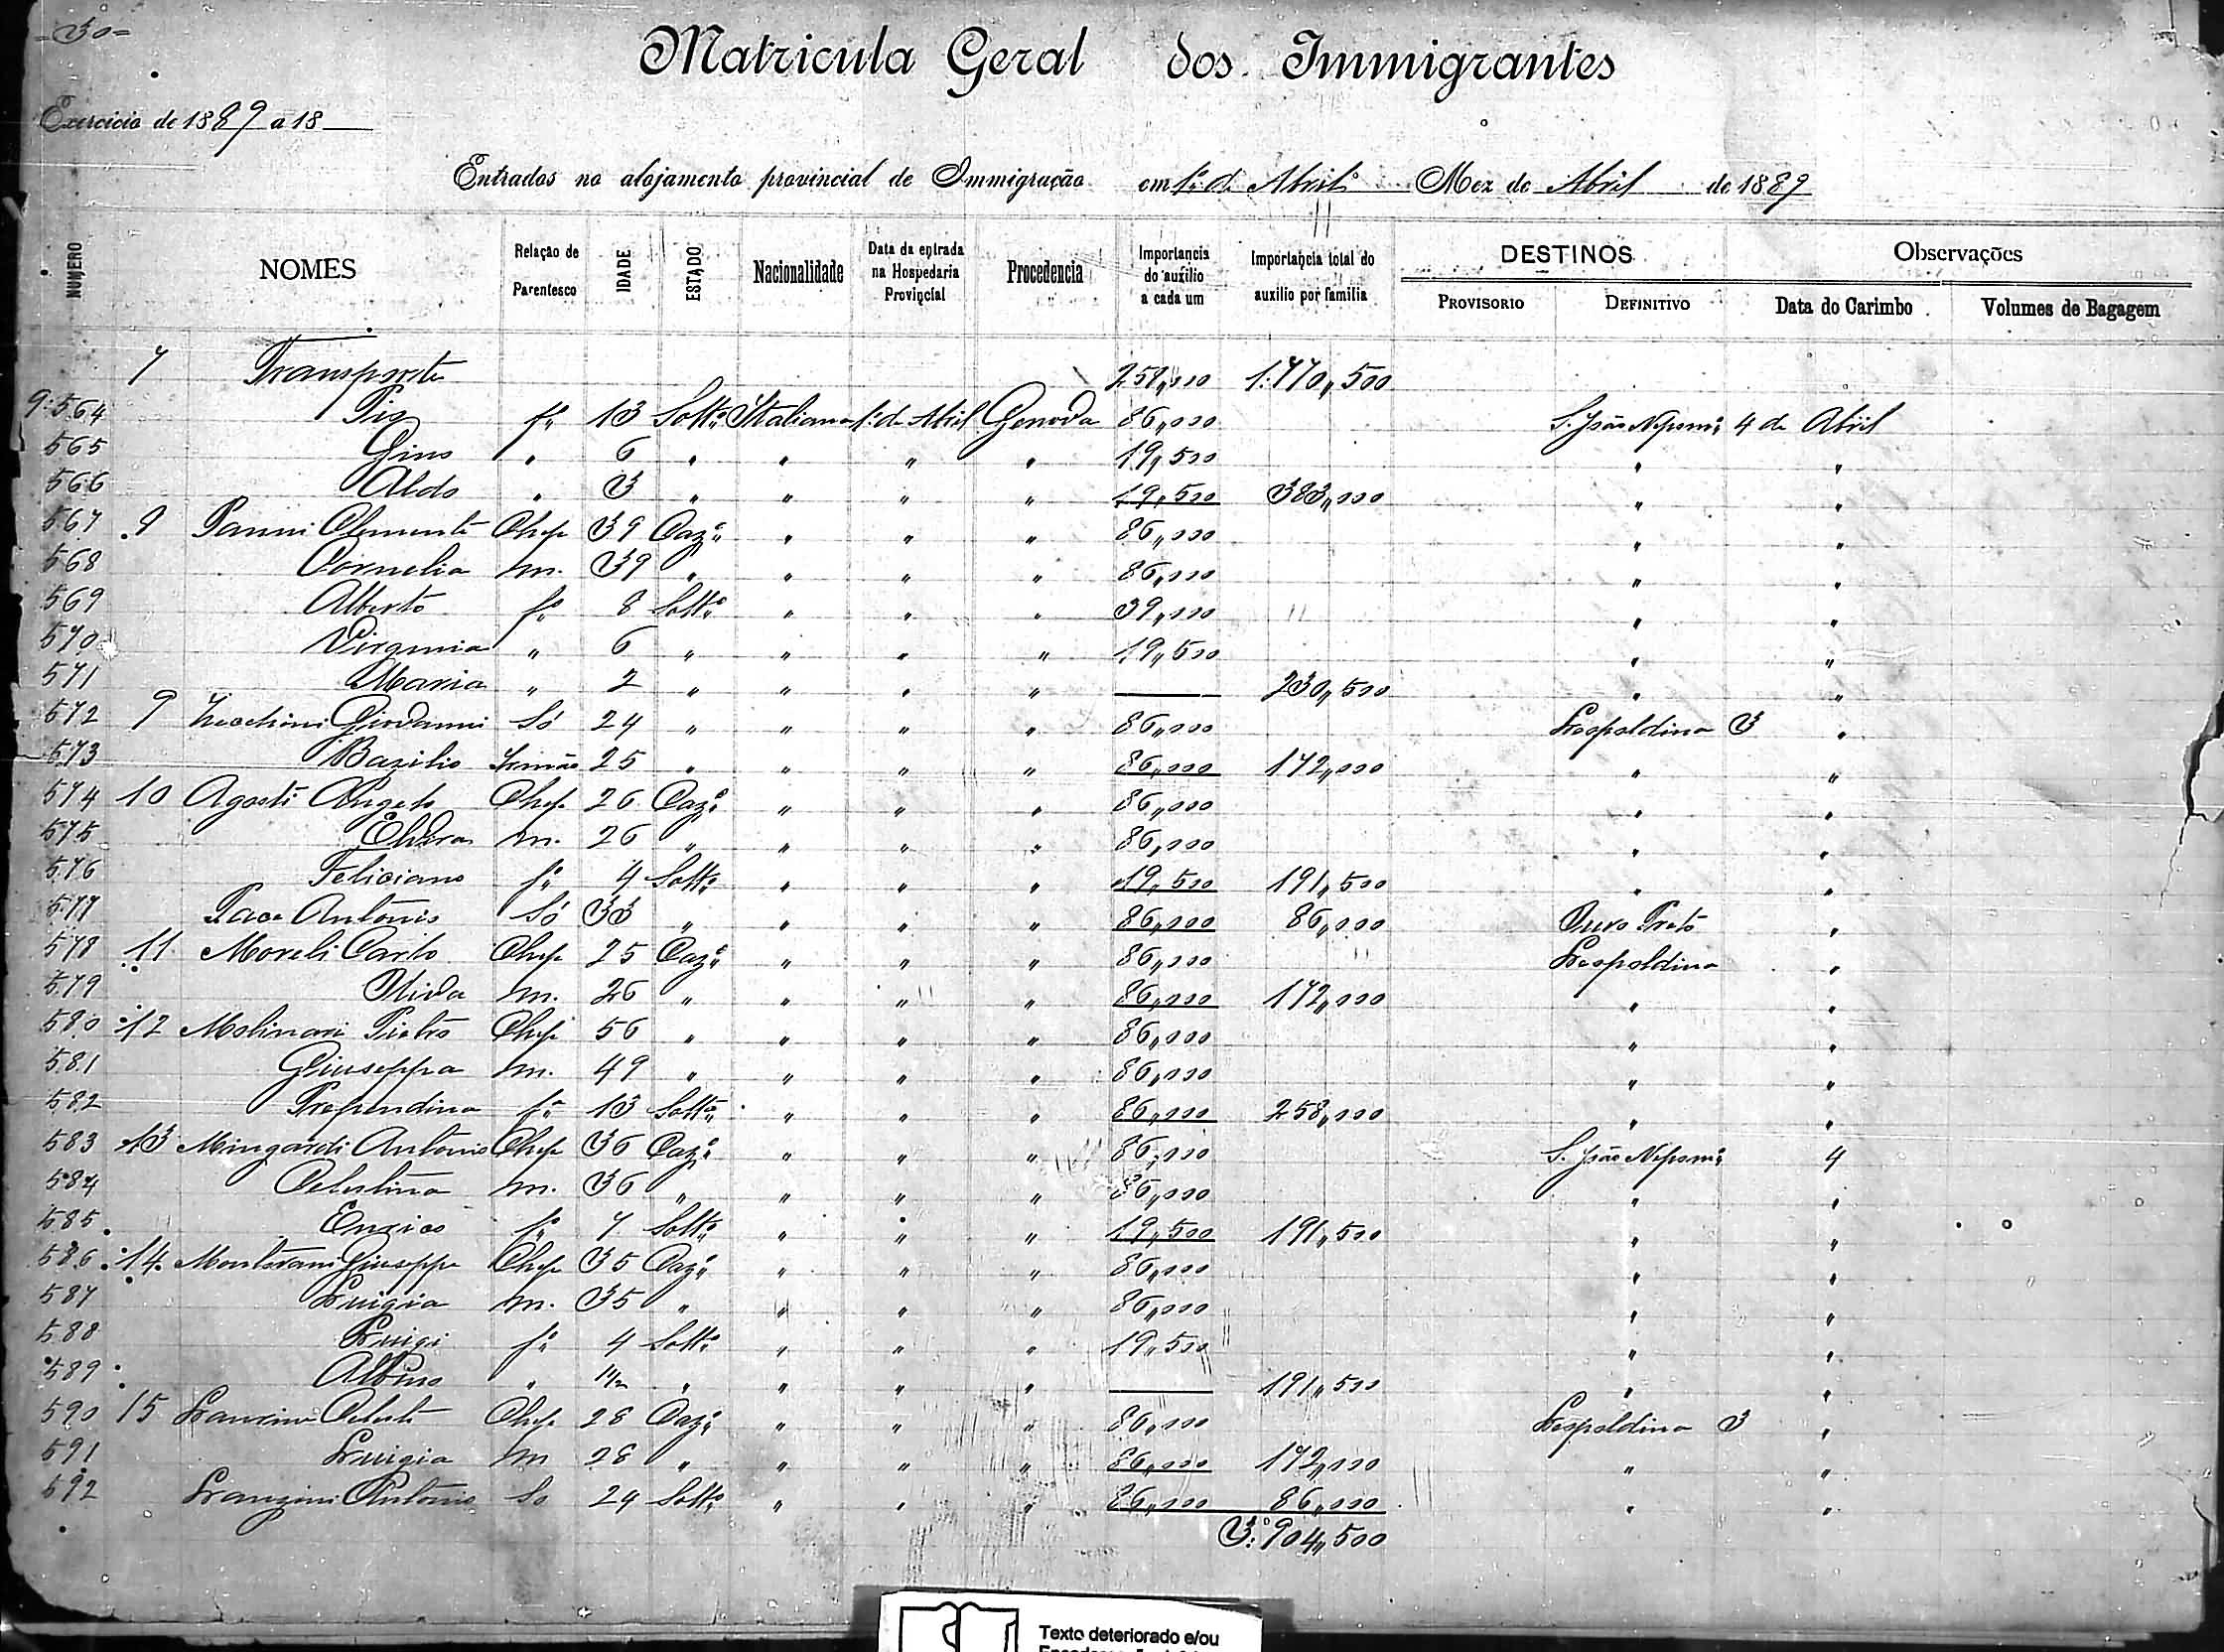 -30-
Matricula Geral dos Immigrantes
Exercicio de 1889 a 18
Entrados no alojamento provincial de Immigração em 1º de Abril Mez de Abril de 1889
NUMERO NOMES Relação de Parentesco IDADE ESTADO Nacionalidade Data da entrada na Hospedaria Provincial Procedencia Importancia do auxilio a cada um Importancia total do auxilio por familia DESTINOS PROVISORIO DEFINITIVO Observações Data do Carimbo Volumes de Bagagem
7 Transporte 258,000 1:770,500
9:564 Pia fª 13 Soltª Italiana 1º de Abril Genova 86,000 S. João Nepomº 4 de Abril
565 Gino " 6 " " " " 19,500 " "
566 Aldo " 3 " " " " 19,500 383,000 " "
567 8 Panni Clemente Chefe 39 Cazº " " " 86,000 " "
568 Cornelia m. 39 " " " " 86,000 " "
569 Alberto fº 8 Soltº " " " 39,000 " "
570 Virginia " 6 " " " " 19,500 " "
571 Maria " 2 " " " " — 230,500 " "
572 9 Giovanni Só 24 " " " " 86,000 Leopoldina 3 "
573 Bazilio Irmão 25 " " " " 86,000 172,000 " "
574 10 Agosti Angelo Chefe 26 Cazº " " " 86,000 " "
575 Elvira m. 26 " " " " 86,000 " "
576 Feliciano fº 4 Soltº " " " 19,500 191,500 " "
577 Pace Antonio Só 33 " " " " 86,000 86,000 Ouro Preto "
578 11 Moreli Carlo Chefe 25 Cazº " " " 86,000 Leopoldina "
579 m. 26 " " " " 86,000 172,000 " "
580 12 Molinari Pietro Chefe 56 " " " " 86,000 " "
581 Giuseppa m. 49 " " " " 86,000 " "
582 fª 13 Soltª " " " 86,000 258,000 " "
583 13 Mingardi Antonio Chefe 36 Cazº " " " 86,000 S. João Nepomº 4
584 Celestina m. 36 " " " " 86,000 " "
585 fº 7 Soltº " " " 19,500 191,500 " "
586 14 Montovani Giuseppe Chefe 35 Cazº " " " 86,000 " "
587 Luigia m. 35 " " " " 86,000 " "
588 Luigi fº 4 Soltº " " " 19,500 " "
589 Albino " 1/2 " " " " — 191,500 " "
590 15 Celeste Chefe 28 Cazº " " " 86,000 Leopoldina 3 "
591 Luigia m 28 " " " " 86,000 172,000 " "
592 Franzini Antonio So 24 Soltº " " " 86,000 86,000 " "
3:904,500
Texto deteriorado e/ou